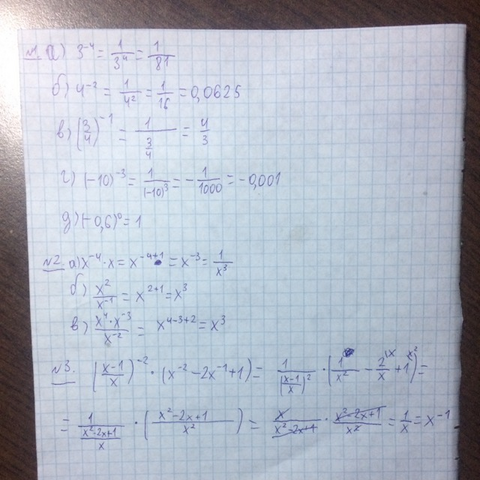 №1. а) 3⁻⁴ = 1/3⁴ = 1/81
б) 4⁻² = 1/4² = 1/16 = 0,0625
в) (3/4)⁻¹ = 1/(3/4) = 4/3
г) (-10)⁻³ = 1/(-10)³ = -1/1000 = -0,001
д) (-0,6)⁰ = 1
№2. а) x⁻⁴ · x = x⁻⁴⁺¹ = x⁻³ = 1/x³
б) x²/x⁻¹ = x²⁺¹ = x³
в) x⁴ · x⁻³/x⁻² = x⁴⁻³⁺² = x³
№3. ((x-1)/x)⁻² · (x⁻² - 2x⁻¹ + 1) = 1/((x-1)/x)² · (1/x² - 2\x/x + 1\x²) =
= 1/((x²-2x+1)/x) · ((x²-2x+1)/x²) = x/(x²-2x+1) · (x²-2x+1)/x² = 1/x = x⁻¹